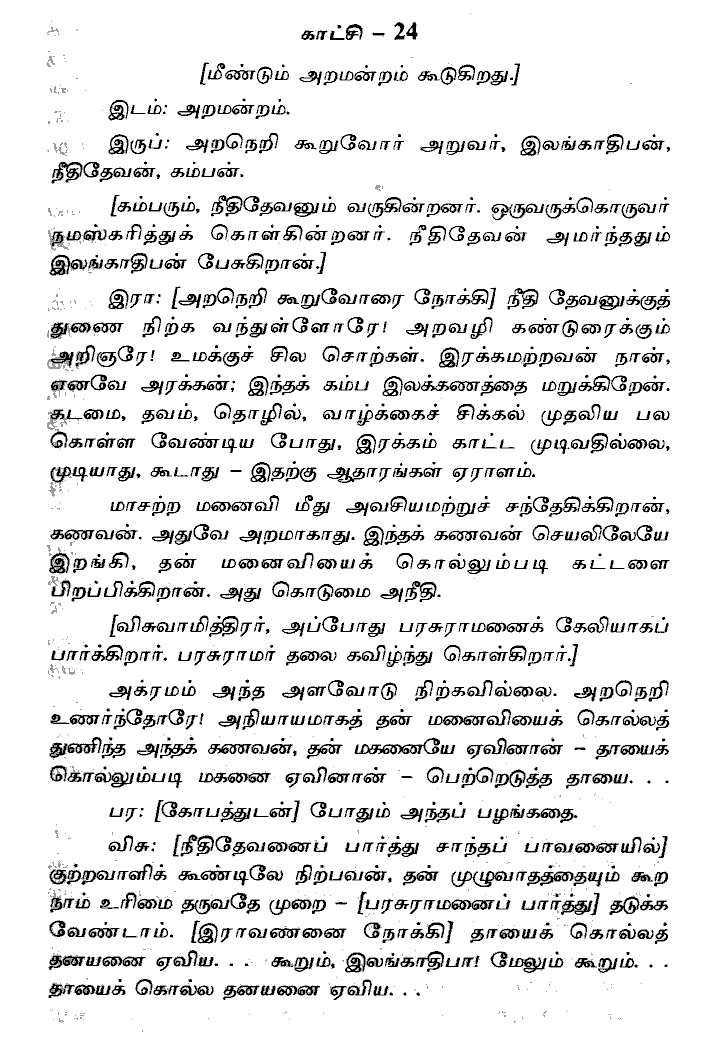 காட்சி – 24
[மீண்டும் அறமன்றம் கூடுகிறது.]
இடம்: அறமன்றம்.
இருப்: அறநெறி கூறுவோர் அறுவர், இலங்காதிபன்,
நீதிதேவன், கம்பன்.
[கம்பரும், நீதிதேவனும் வருகின்றனர். ஒருவருக்கொருவர்
நமஸ்கரித்துக் கொள்கின்றனர். நீதிதேவன் அமர்ந்ததும்
இலங்காதிபன் பேசுகிறான்.]
இரா: [அறநெறி கூறுவோரை நோக்கி] நீதி தேவனுக்குத்
துணை நிற்க வந்துள்ளோரே! அறவழி கண்டுரைக்கும்
அறிஞரே! உமக்குச் சில சொற்கள். இரக்கமற்றவன் நான்,
எனவே அரக்கன்; இந்தக் கம்ப இலக்கணத்தை மறுக்கிறேன்.
கடமை, தவம், தொழில், வாழ்க்கைச் சிக்கல் முதலிய பல
கொள்ள வேண்டிய போது, இரக்கம் காட்ட முடிவதில்லை,
முடியாது, கூடாது – இதற்கு ஆதாரங்கள் ஏராளம்.
மாசற்ற மனைவி மீது அவசியமற்றுச் சந்தேகிக்கிறான்,
கணவன். அதுவே அறமாகாது. இந்தக் கணவன் செயலிலேயே
இறங்கி, தன் மனைவியைக் கொல்லும்படி கட்டளை
பிறப்பிக்கிறான். அது கொடுமை அநீதி.
[விசுவாமித்திரர், அப்போது பரசுராமனைக் கேலியாகப்
பார்க்கிறார். பரசுராமர் தலை கவிழ்ந்து கொள்கிறார்.]
அக்ரமம் அந்த அளவோடு நிற்கவில்லை. அறநெறி
உணர்ந்தோரே! அநியாயமாகத் தன் மனைவியைக் கொல்லத்
துணிந்த அந்தக் கணவன், தன் மகனையே ஏவினான் – தாயைக்
கொல்லும்படி மகனை ஏவினான் – பெற்றெடுத்த தாயை. . .
பர: [கோபத்துடன்] போதும் அந்தப் பழங்கதை.
விசு: [நீதிதேவனைப் பார்த்து சாந்தப் பாவனையில்]
குற்றவாளிக் கூண்டிலே நிற்பவன், தன் முழுவாதத்தையும் கூற
நாம் உரிமை தருவதே முறை – [பரசுராமனைப் பார்த்து] தடுக்க
வேண்டாம். [இராவணனை நோக்கி] தாயைக் கொல்லத்
தனயனை ஏவிய. . . கூறும், இலங்காதிபா! மேலும் கூறும். . .
தாயைக் கொல்ல தனயனை ஏவிய. . .